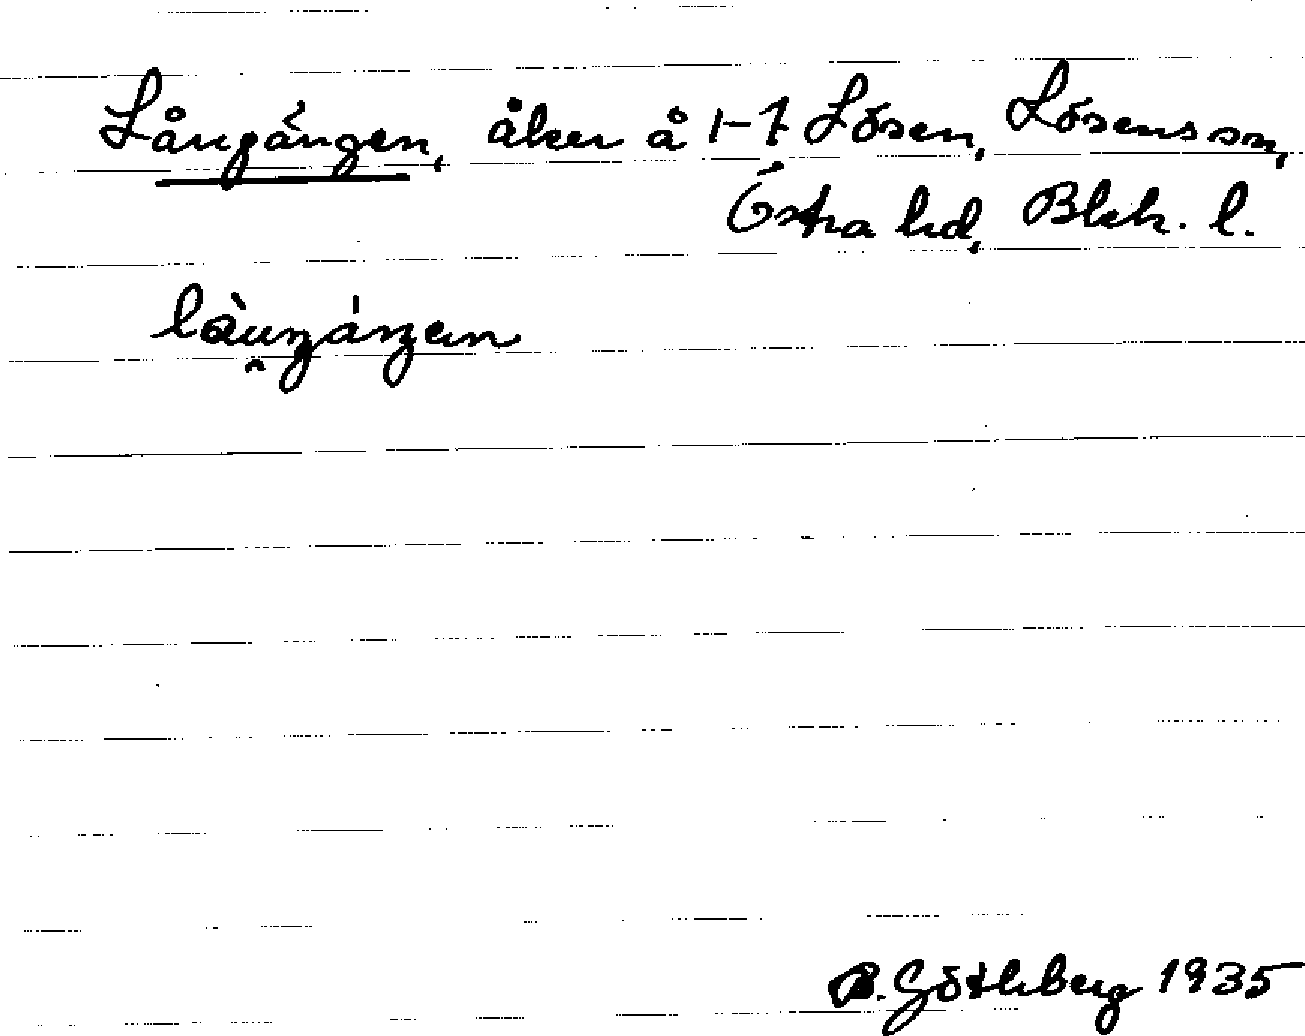 Långången, åker å 1-7 Lösen, Lösens sn,
Östra hd, Blek. l.
B. Göthberg 1935